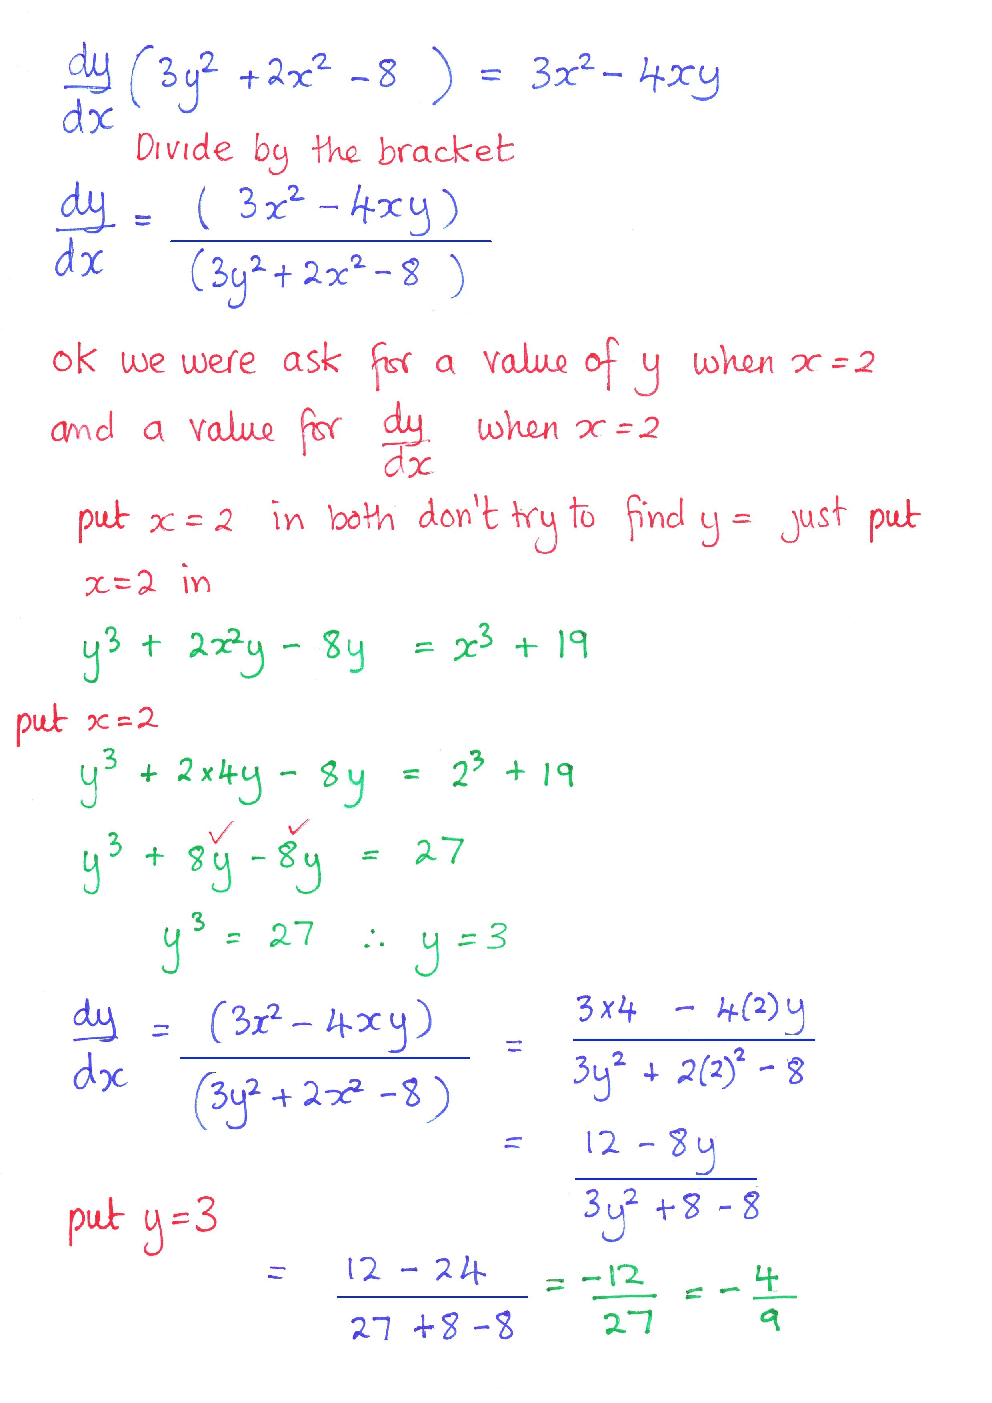 dy/dx (3y² + 2x² - 8) = 3x² - 4xy
Divide by the bracket
dy/dx = (3x² - 4xy)/(3y² + 2x² - 8)
ok we were ask for a value of y when x = 2
and a value for dy/dx when x = 2
put x = 2 in both don't try to find y = just put
x = 2 in
y³ + 2x²y - 8y = x³ + 19
put x = 2
y³ + 2×4y - 8y = 2³ + 19
y³ + 8y ✓ - 8y ✓ = 27
y³ = 27 ∴ y = 3
dy/dx = (3x² - 4xy)/(3y² + 2x² - 8) = (3×4 - 4(2)y)/(3y² + 2(2)² - 8)
= (12 - 8y)/(3y² + 8 - 8)
put y = 3
= (12 - 24)/(27 + 8 - 8) = -12/27 = -4/9